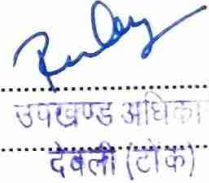 उपखण्ड अधिका
देवली (टोंक)